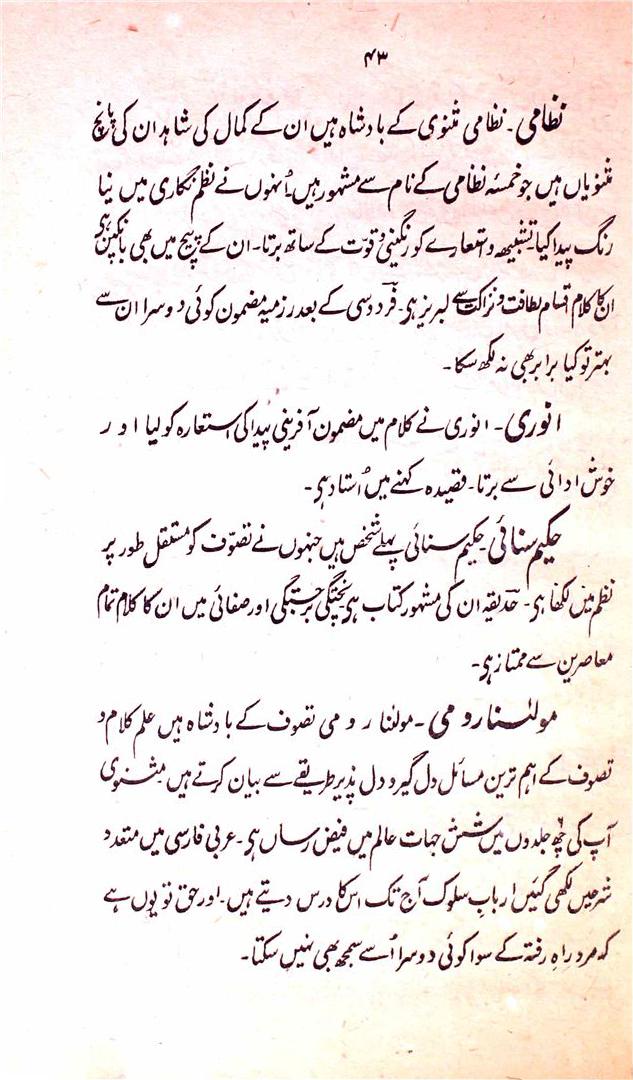 ۴۳
نظامی۔ نظامی مثنوی کے بادشاہ ہیں ان کے کمال کی شاہد ان کی پانچ
مثنویاں ہیں جو خمسۂ نظامی کے نام سے مشہور ہیں۔ اُنہوں نے نظم نگاری میں نیا
رنگ پیدا کیا تشبیہہ و استعارے کو رنگینی و قوت کے ساتھ برتا۔ ان کے پیچ میں بھی بانکپن ہی
ان کا کلام اقسام لطافت و نزاکت سے لبریز ہی۔ فردوسی کے بعد رزمیہ مضمون کوئی دوسرا ان سے
بہتر تو کیا برابر بھی نہ لکھ سکا۔
انوری۔ انوری نے کلام میں مضمون آفرینی پیدا کی استعارہ کو لیا اور
خوش ادائی سے برتا۔ قصیدہ کہنے میں اُستاد ہی۔
حکیم سنائی۔ حکیم سنائی پہلے شخص ہیں جنہوں نے تصوّف کو مستقل طور پر
نظم میں لکھا ہی۔ حدیقہ ان کی مشہور کتاب ہی پختگی برجستگی اور صفائی میں ان کا کلام تمام
معاصرین سے ممتاز ہی۔
مولٰنا رومی۔ مولٰنا رومی تصوف کے بادشاہ ہیں علم کلام و
تصوف کے اہم ترین مسائل دل گیر و دل پذیر طریقے سے بیان کرتے ہیں مثنوی
آپ کی چھ جلدوں میں شش جہات عالم میں فیض رساں ہی۔ عربی فارسی میں متعدد
شرحیں لکھی گئیں ارباب سلوک آج تک اس کا درس دیتے ہیں۔ اور حق تو یوں ہے
کہ مرد راہِ رفتہ کے سوا کوئی دوسرا اُسے سمجھ بھی نہیں سکتا۔